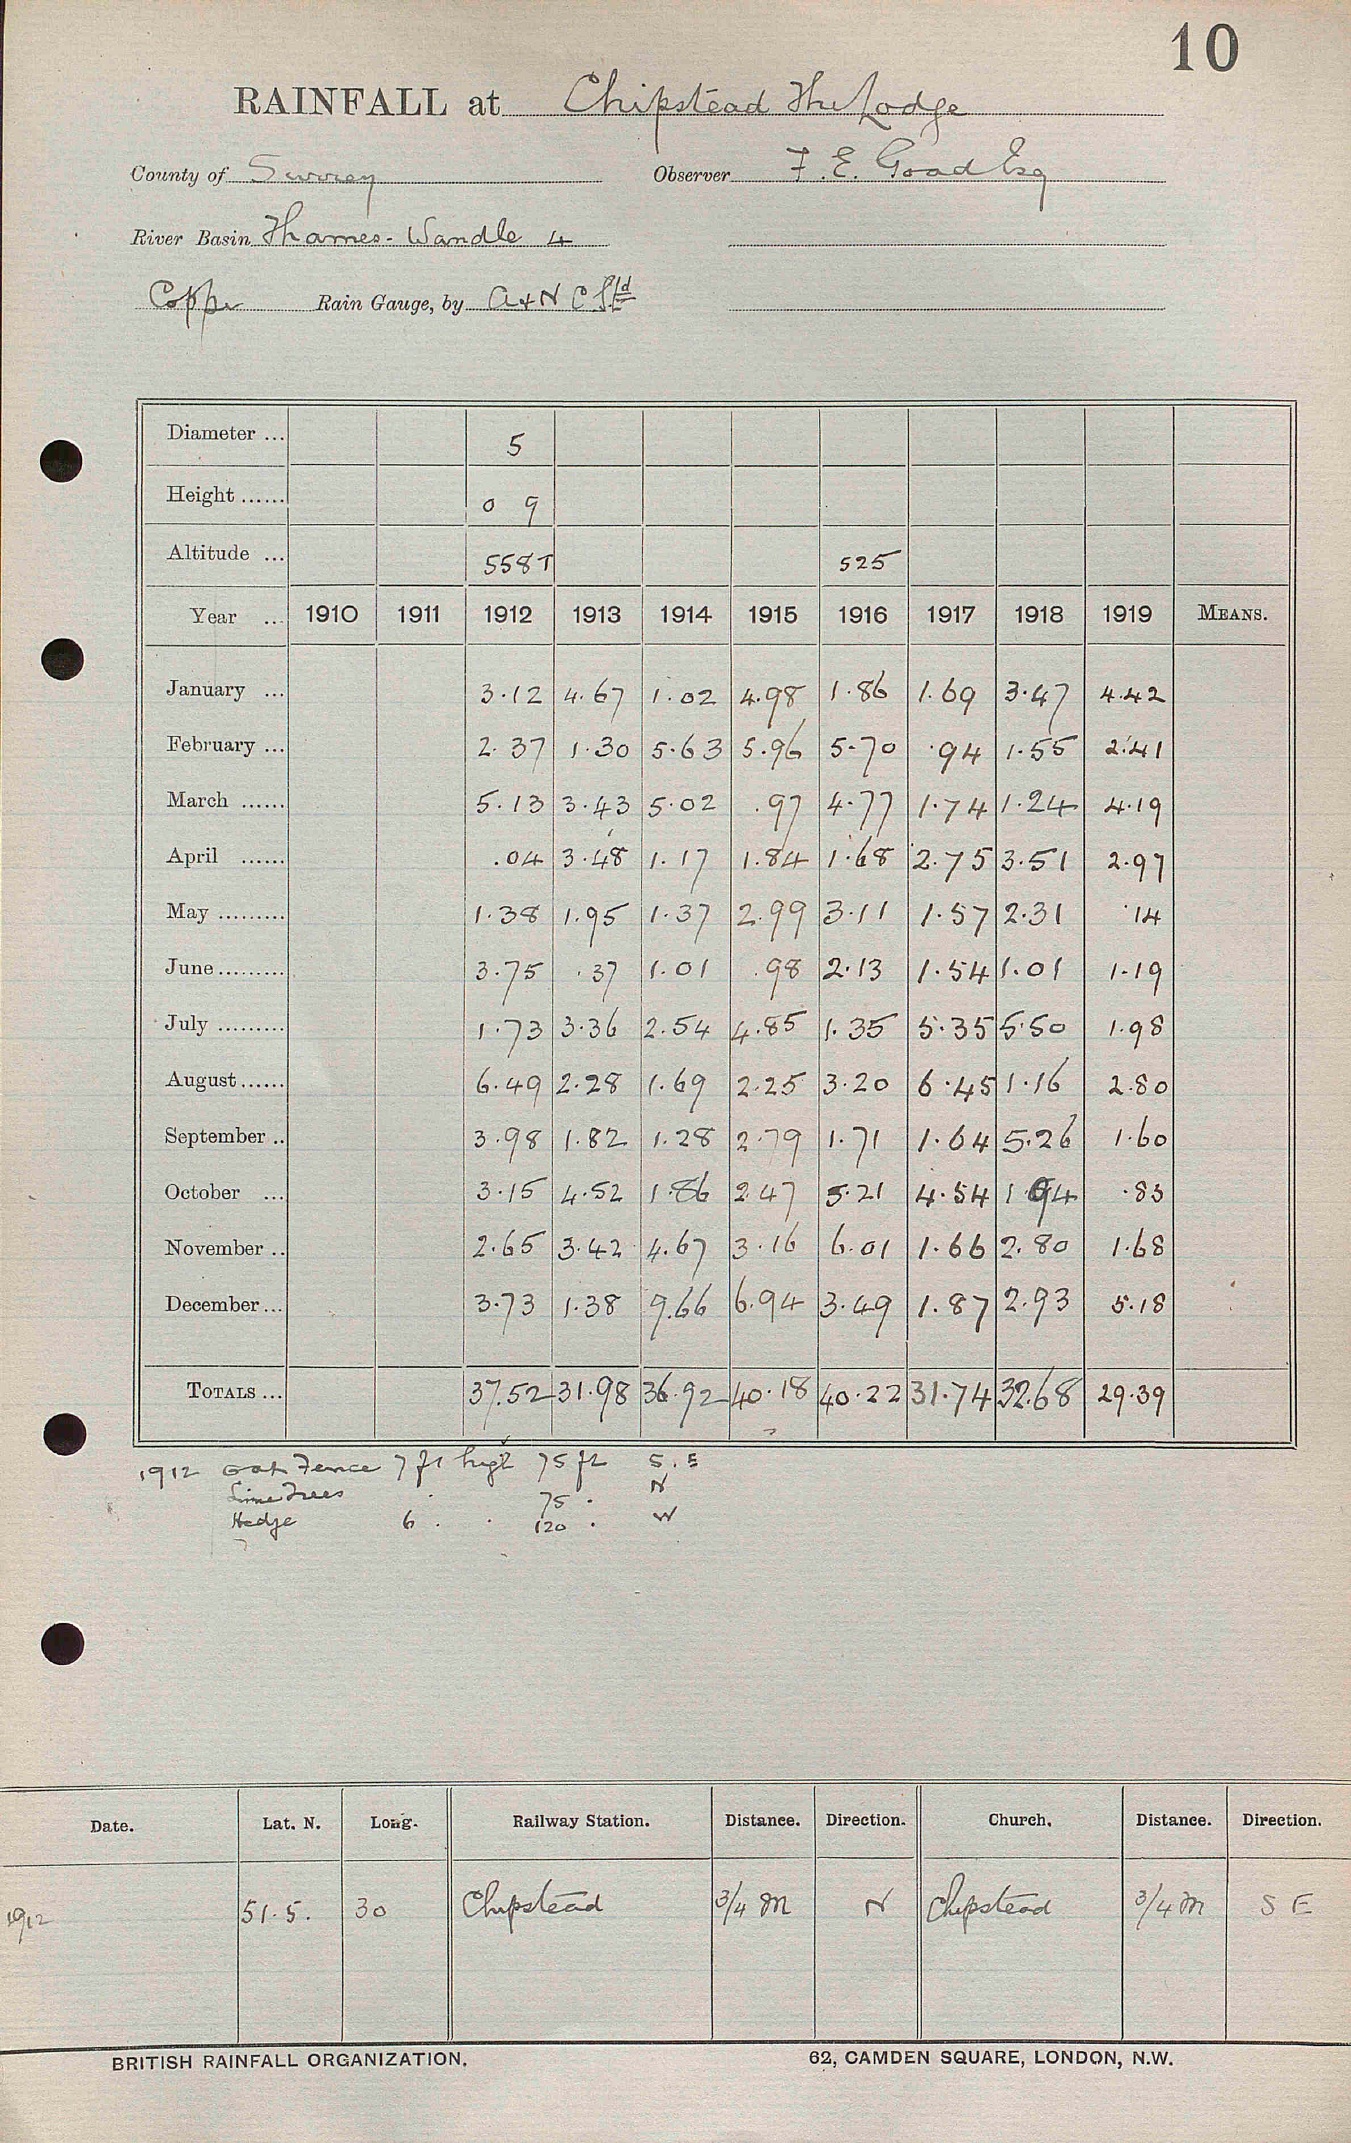 10
RAINFALL at Chipstead The Lodge
County of Surrey Observer F. E. Goad Esq
River Basin Thames - Wandle 4
Copper Rain Gauge, by A & N C S Ltd
Diameter ... 5
Height ...... 0 9
Altitude ... 558T 525
Year ... 1910 1911 1912 1913 1914 1915 1916 1917 1918 1919 MEANS.
January ... 3.12 4.67 1.02 4.98 1.86 1.69 3.47 4.42
February ... 2.37 1.30 5.63 5.96 5.70 .94 1.55 2.41
March ...... 5.13 3.43 5.02 .97 4.77 1.74 1.24 4.19
April ...... .04 3.48 1.17 1.84 1.68 2.75 3.51 2.97
May ......... 1.38 1.95 1.37 2.99 3.11 1.57 2.31 .14
June ......... 3.75 .37 1.01 .98 2.13 1.54 1.01 1.19
July ......... 1.73 3.36 2.54 4.85 1.35 5.35 5.50 1.98
August ...... 6.49 2.28 1.69 2.25 3.20 6.45 1.16 2.80
September .. 3.98 1.82 1.28 2.79 1.71 1.64 5.26 1.60
October ... 3.15 4.52 1.86 2.47 5.21 4.54 1.94 .83
November .. 2.65 3.42 4.67 3.16 6.01 1.66 2.80 1.68
December ... 3.73 1.38 9.66 6.94 3.49 1.87 2.93 5.18
TOTALS ... 37.52 31.98 36.92 40.18 40.22 31.74 32.68 29.39
1912 Oak Fence 7 ft high 75 ft S.E
Lime Trees 75 . N
Hedge 6 . . 120 . W
Date. Lat. N. Long. Railway Station. Distance. Direction. Church. Distance. Direction.
1912 51.5. 30 Chipstead 3/4 M N Chipstead 3/4 M S E
BRITISH RAINFALL ORGANIZATION. 62, CAMDEN SQUARE, LONDON, N.W.